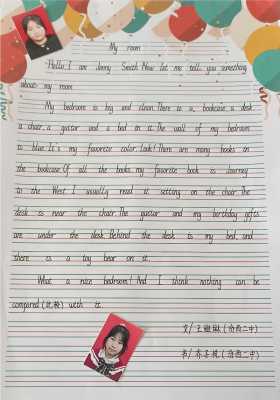 My room
Hello! I am Jenny Smith. Now let me tell you something
about my room
My bedroom is big and clean. There is a bookcase, a desk,
a chair, a guitar and a bed in it. The wall of my bedroom
is blue. It's my favorite color. Look! There are many books in
the bookcase. Of all the books, my favorite book is Journey
to the West. I usually read it setting on the chair. The
desk is near the chair. The guitar and my birthday gifts
are under the desk. Behind the desk is my bed, and
there is a toy bear on it.
What a nice bedroom! And I think nothing can be
compared (比较) with it.
文/王
书/乔